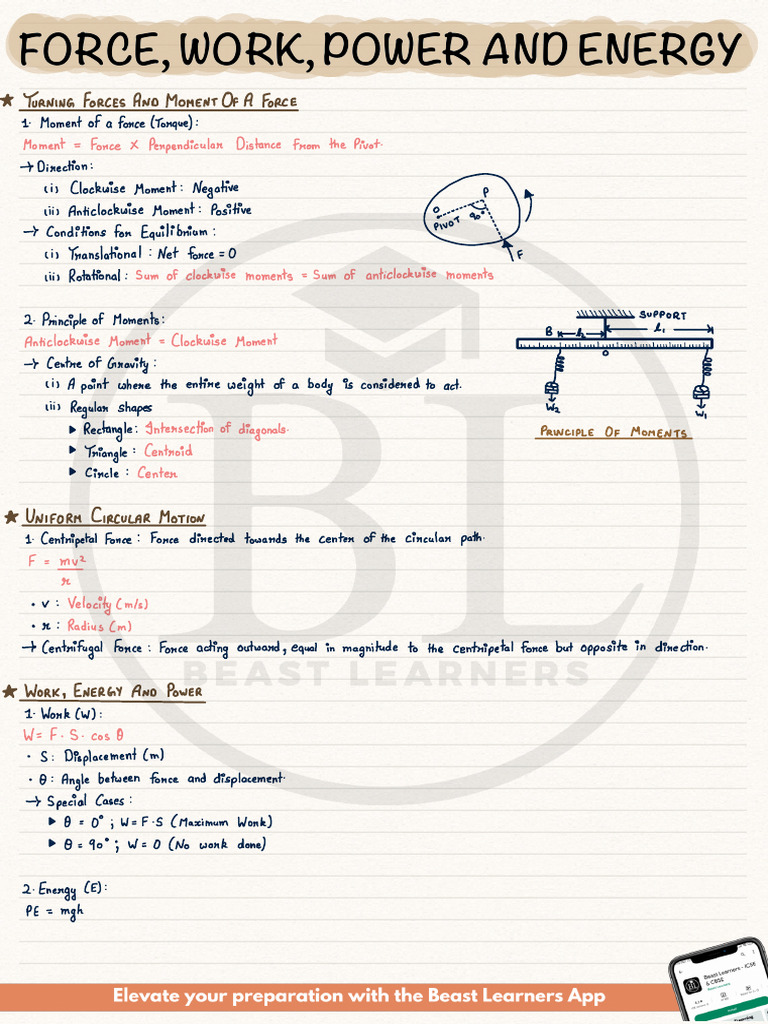 FORCE, WORK, POWER AND ENERGY
★ TURNING FORCES AND MOMENT OF A FORCE
1. Moment of a force (Torque):
Moment = Force × Perpendicular Distance from the Pivot.
→ Direction:
(i) Clockwise Moment: Negative
(ii) Anticlockwise Moment: Positive
→ Conditions for Equilibrium:
(i) Translational: Net force = 0
(ii) Rotational: Sum of clockwise moments = Sum of anticlockwise moments
O
P
PIVOT 90°
F
2. Principle of Moments:
Anticlockwise Moment = Clockwise Moment
→ Centre of Gravity:
(i) A point where the entire weight of a body is considered to act.
(ii) Regular shapes
▶ Rectangle: Intersection of diagonals.
▶ Triangle: Centroid
▶ Circle: Center
SUPPORT
B l₂ l₁
O
W₂ W₁
PRINCIPLE OF MOMENTS
★ UNIFORM CIRCULAR MOTION
1. Centripetal Force: Force directed towards the center of the circular path.
F = mv²
r
• v: Velocity (m/s)
• r: Radius (m)
→ Centrifugal Force: Force acting outward, equal in magnitude to the centripetal force but opposite in direction.
BL
BEAST LEARNERS
★ WORK, ENERGY AND POWER
1. Work (W):
W = F. S. cos θ
• S: Displacement (m)
• θ: Angle between force and displacement.
→ Special Cases:
▶ θ = 0°; W = F.S (Maximum Work)
▶ θ = 90°; W = 0 (No work done)
2. Energy (E):
PE = mgh
Elevate your preparation with the Beast Learners App
Beast Learners - ICSE
& CBSE